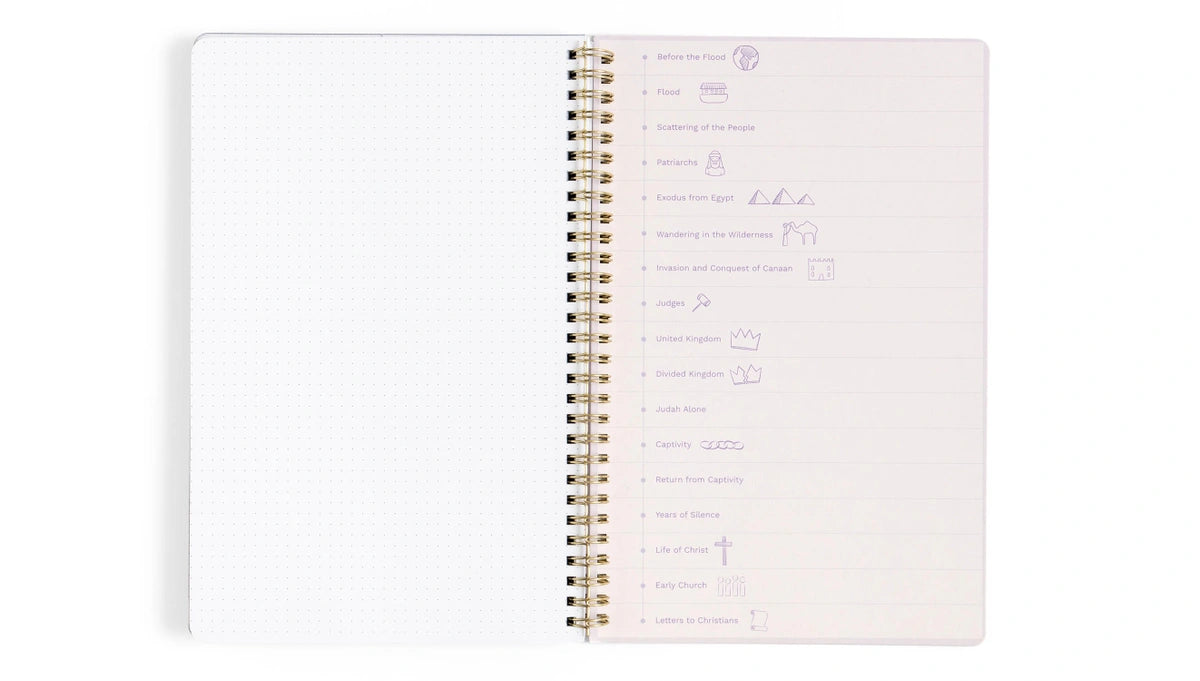 Before the Flood
Flood
Scattering of the People
Patriarchs
Exodus from Egypt
Wandering in the Wilderness
Invasion and Conquest of Canaan
Judges
United Kingdom
Divided Kingdom
Judah Alone
Captivity
Return from Captivity
Years of Silence
Life of Christ
Early Church
Letters to Christians